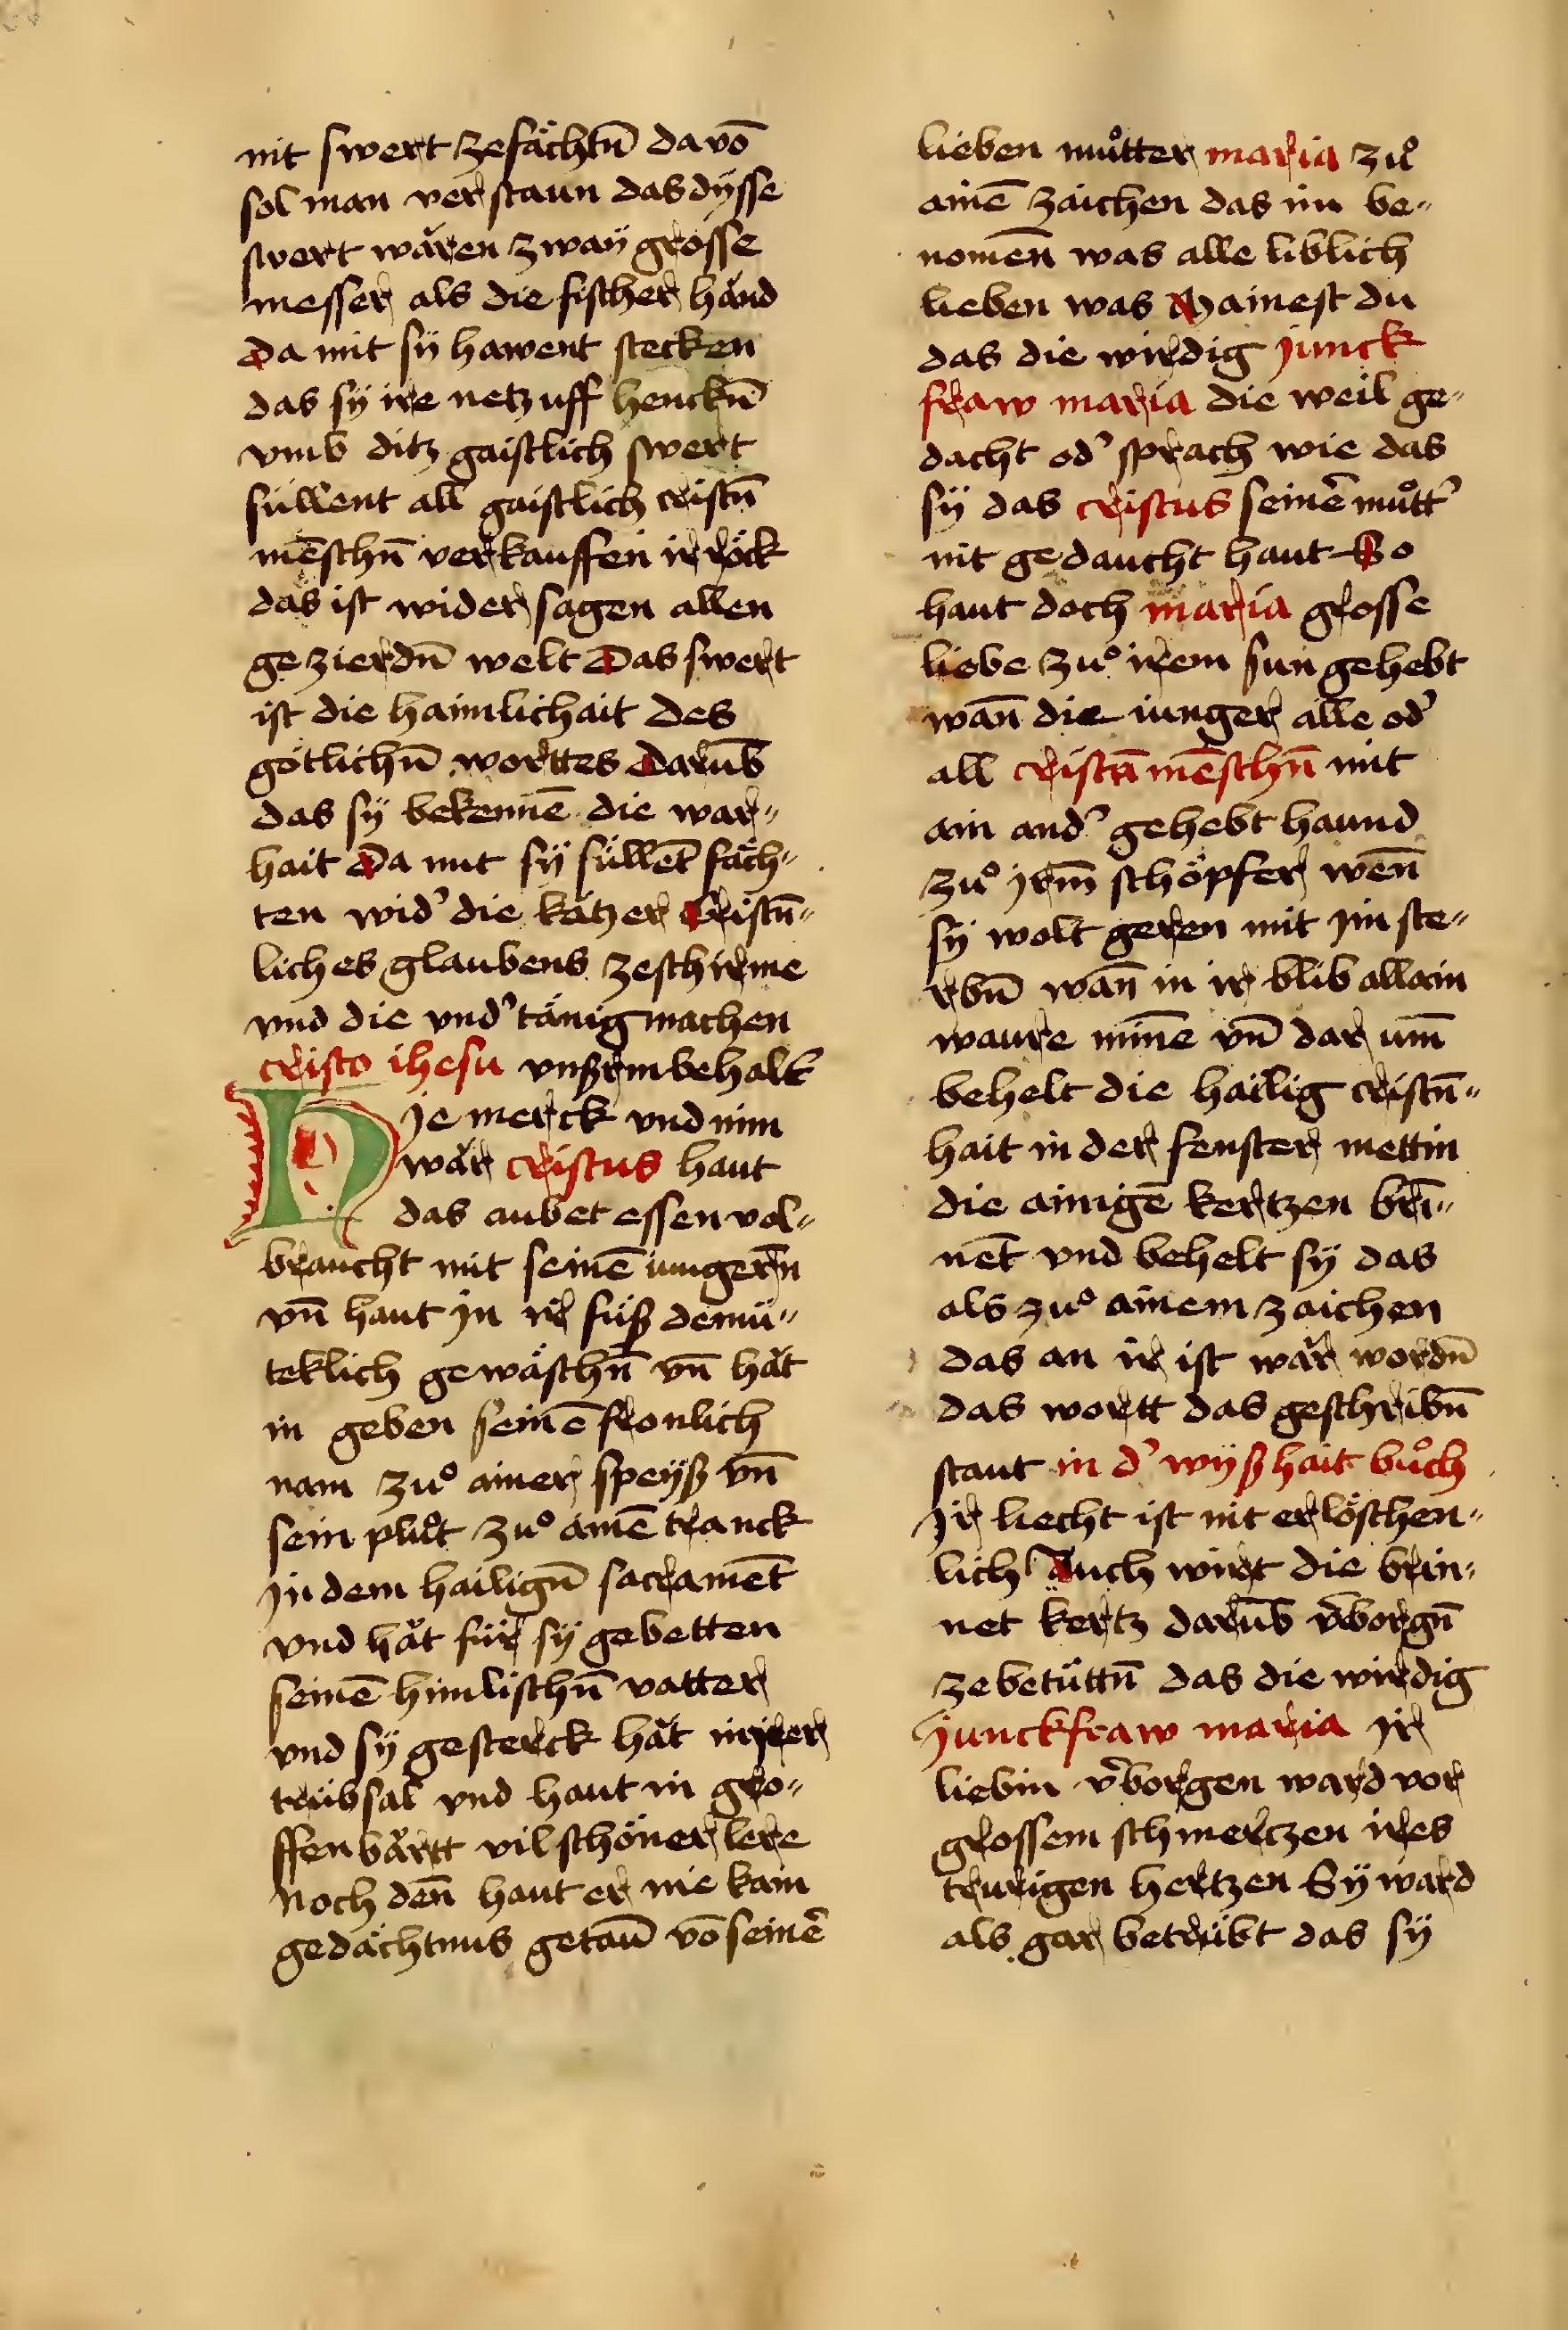 nit swert zefächtn̄ da vō
sol man verstaun das dÿsse
swert wären zwaÿ grosse
messer als die fischer händ
Da mit sÿ hawent stecken
das sÿ ire netz uff henckn̄
vmb ditz gaistlich swert
süllent all gaistlich cristn̄
mēschn̄ verkauffen ir röck
das ist widersagen allen
gezierdn̄ welt Das swert
ist die haimlichait des
götlichn̄ worttes Darūb
das sÿ bekennē die war〃
hait Da mit sÿ süllēt fäch〃
ten wid' die kätzer Cristn̄〃
liches glaubens zeschirme
vnd die vnd'tänig machen
cristo ihesu vnßrm behalt'
Hie merck vnd nim
wär cristus haut
das aubet essen vol〃
braucht mit seinē iungern̄
vn̄ haut jn ir füß demü〃
teklich gewäschn̄ vn̄ hät
in geben seinē fronlich
nam zuͦ ainer speÿß vn̄
sein pluͦt zuͦ ainē tranck
jn dem hailign̄ sacramēt
vnd hät für sÿ gebetten
seinē himlischn̄ vatter
vnd sÿ gesterck hät in jrer
trübsal vnd haut in gro〃
ffenbärtt vil schöner lere
Noch den̄ haut er nie kain
gedächtnus getaun̄ vō seinē'
lieben muͦtter maria zuͦ
ainē zaichen das im be〃
nomen̄ was alle liblich
lieben was Mainest du
das die wirdig junck
fraw maria die weil ge〃
dacht od' sprach wie das
sÿ das cristus seinē muͦtt'
nit gedaucht haut So
haut doch maria grosse
liebe zuͦ irem sun gehebt
wan̄ die iunger alle od'
all cristā mēschn̄ mit
ain and' gehebt haund
zuͦ jrm̄ schöpfer wen̄
sÿ wolt geren mit jm ste〃
rbn̄ wan̄ in ir blib allain
waure minē vn̄ dar um̄
behelt die hailig cristn̄〃
hait in der fenster mettin
die ainigē kertzen brī〃
nēt vnd behelt sÿ das
als zuͦ ainem zaichen
das an ir ist wär wordn̄
das wortt das geschribn̄
staut in d' wÿßhait buͦch
Jr liecht ist nit erlöschen〃
lich Auch wirt die brin〃
net kertz darūb v'borgn̄
zebetüttn̄ das die wirdig
Junckfraw maria jr
liebin v'borgen ward vor
grossem schmertzen ires
trurigen hertzen Sÿ ward
als gar betrübt das sÿ